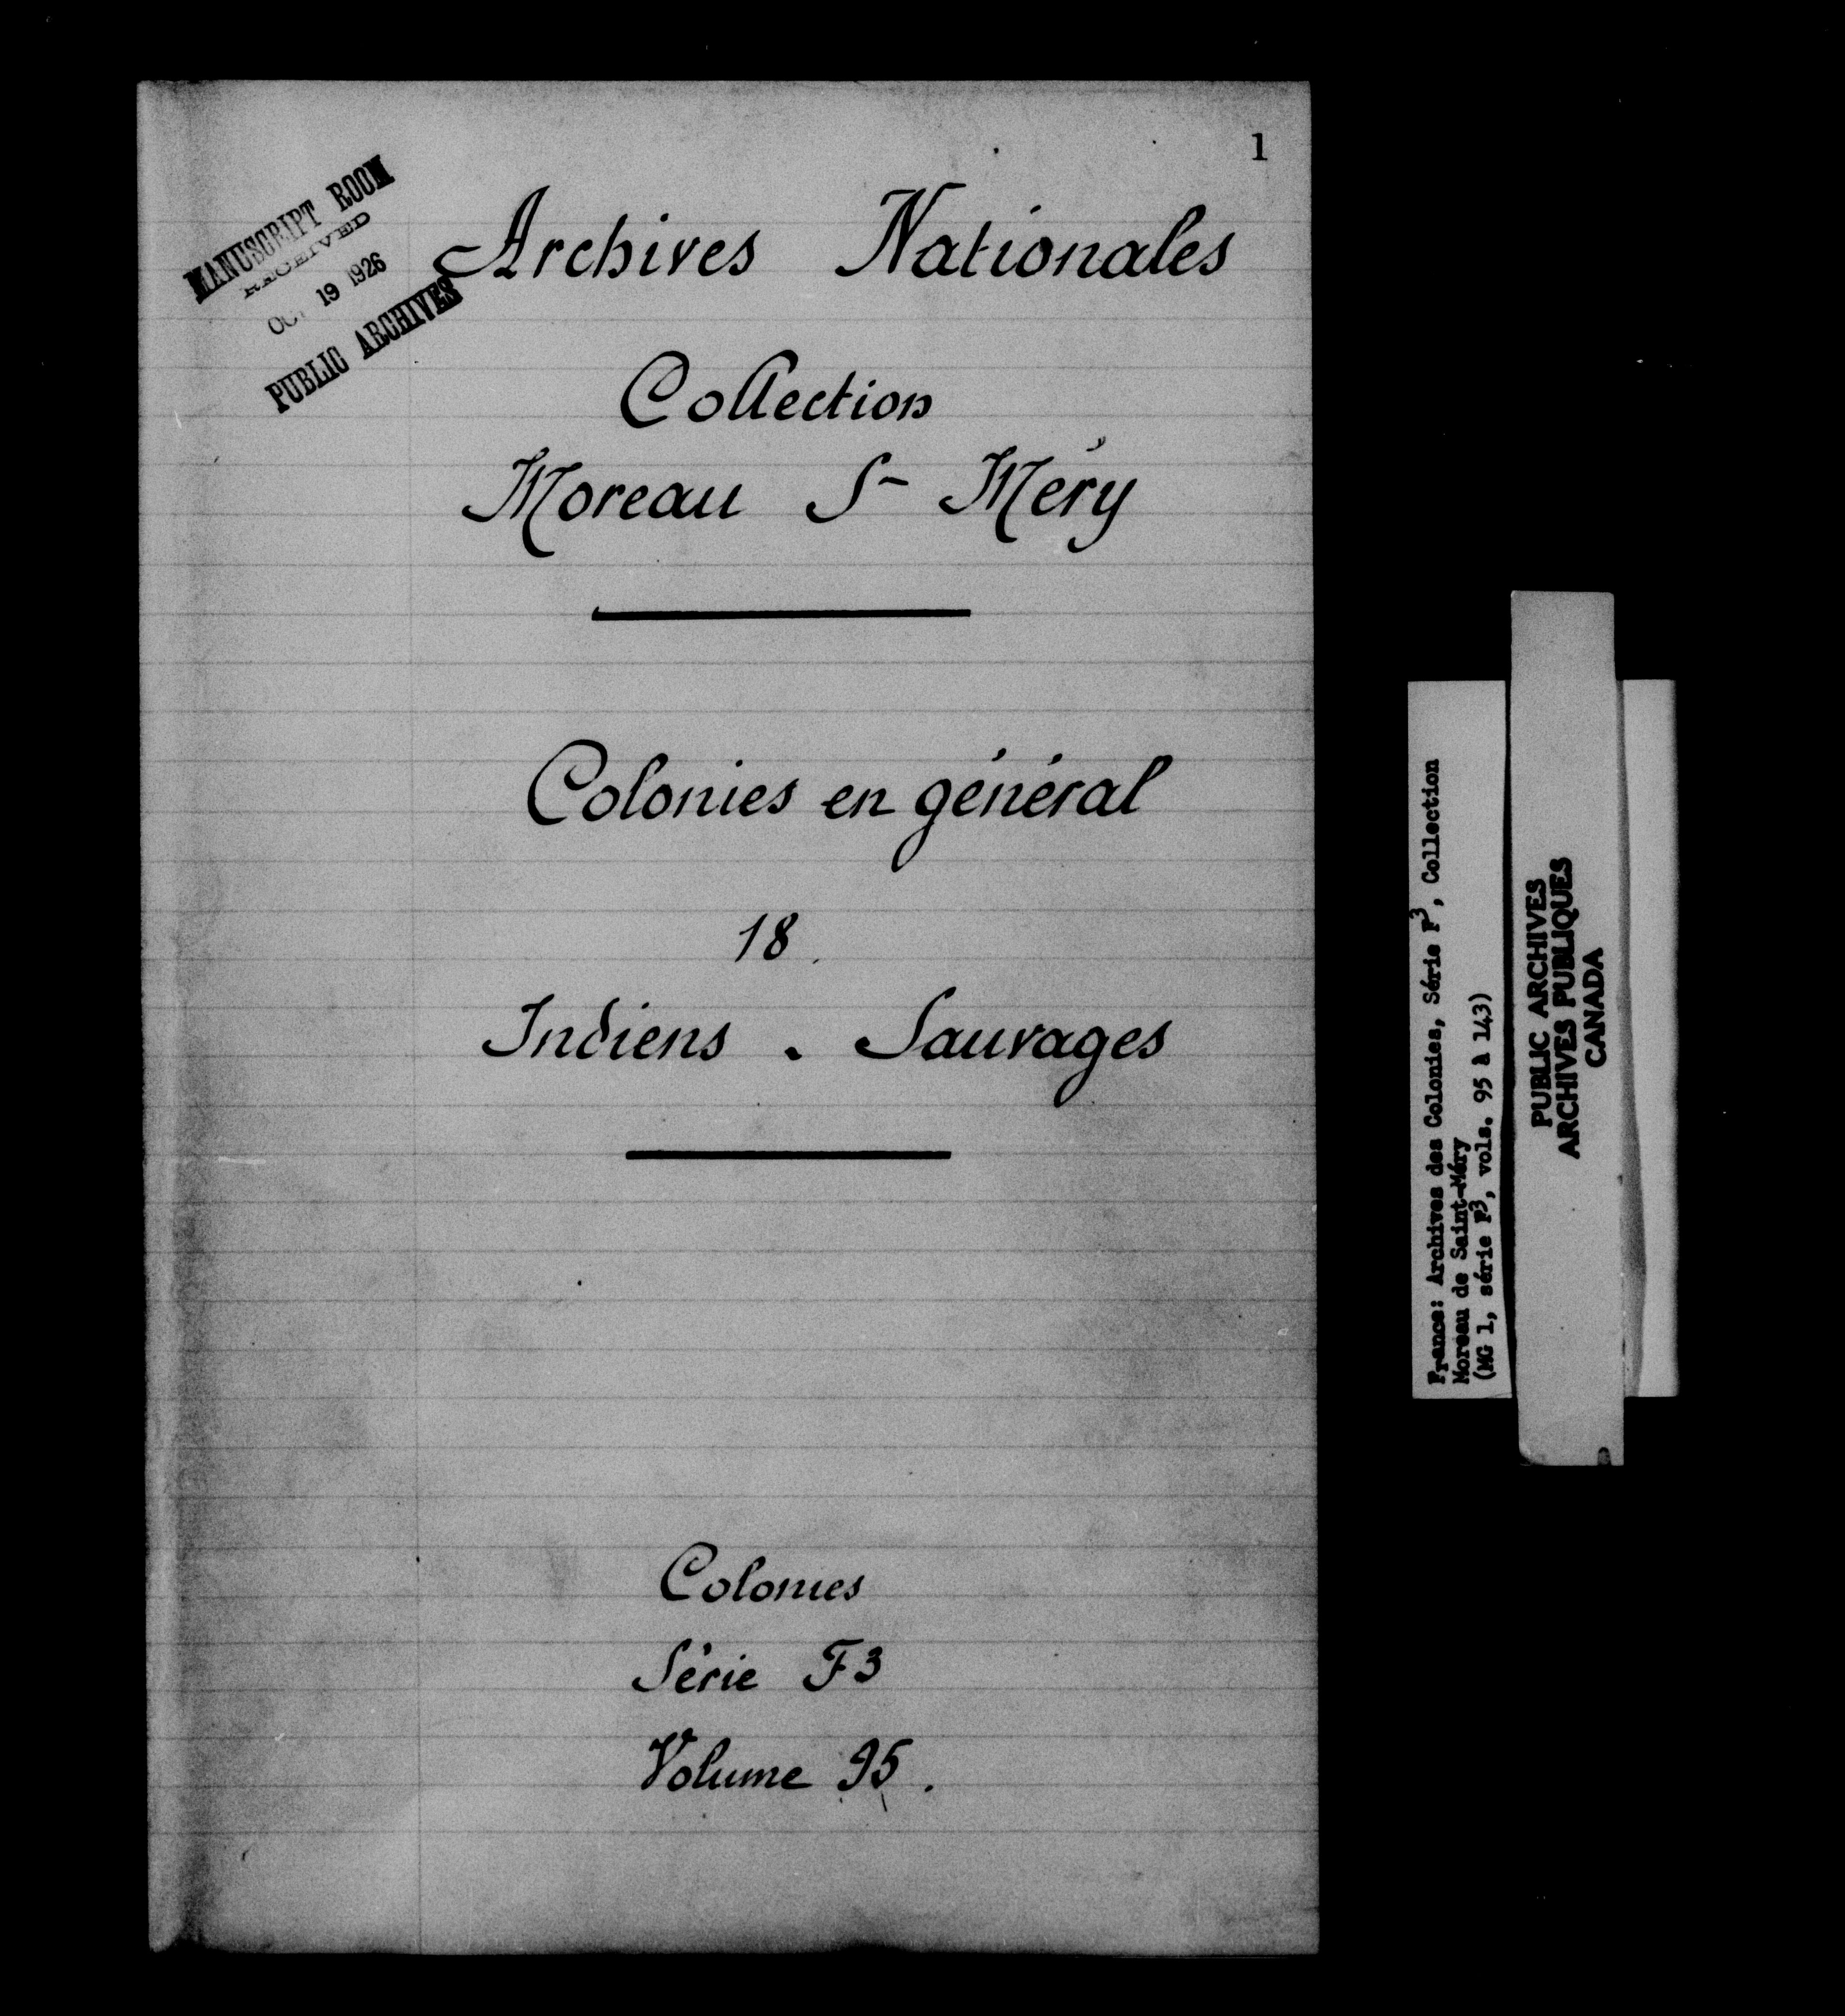 1
MANUSCRIPT ROOM
RECEIVED
OCT 19 1926
PUBLIC ARCHIVES
Archives Nationales
Collection
Moreau St Méry
Colonies en général
18.
Indiens. Sauvages
Colonies
Série F3
Volume 95.
France: Archives des Colonies, Série F3, Collection
Moreau de Saint-Méry
(MG 1, série F3, vols. 95 à 143)
PUBLIC ARCHIVES
ARCHIVES PUBLIQUES
CANADA